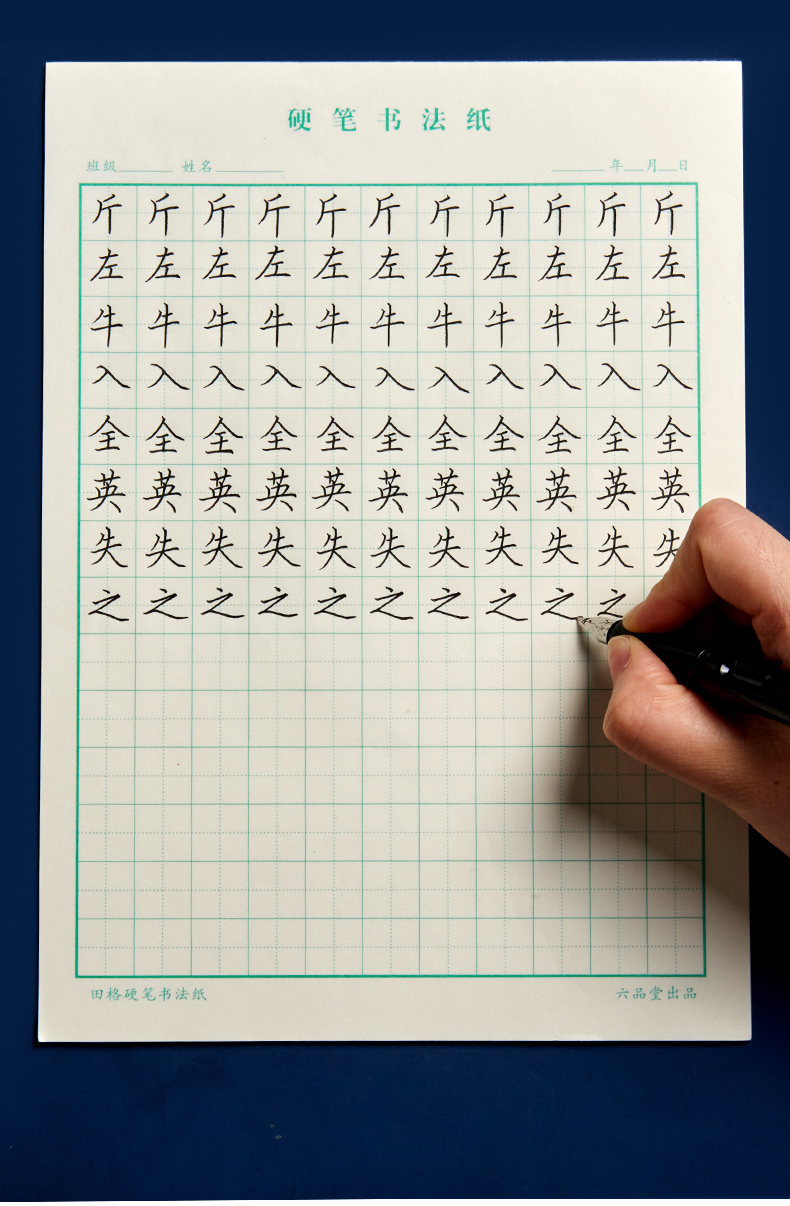 硬笔书法纸
班级 姓名 年 月 日
斤斤斤斤斤斤斤斤斤斤斤
左左左左左左左左左左左
牛牛牛牛牛牛牛牛牛牛牛
入入入入入入入入入入入
全全全全全全全全全全全
英英英英英英英英英英英
失失失失失失失失失失失
之之之之之之之之之之
田格硬笔书法纸 六品堂出品